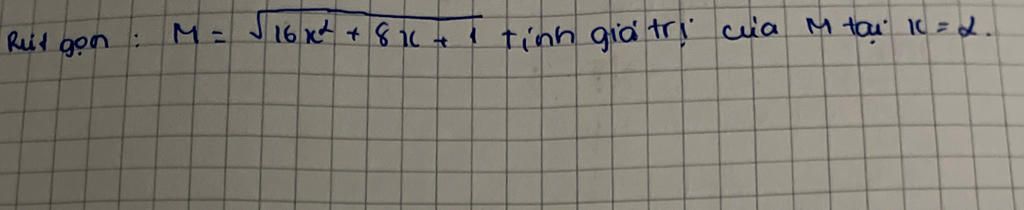 Rút gọn : M = √16x² + 8x + 1 tính giá trị của M tại x = 2.